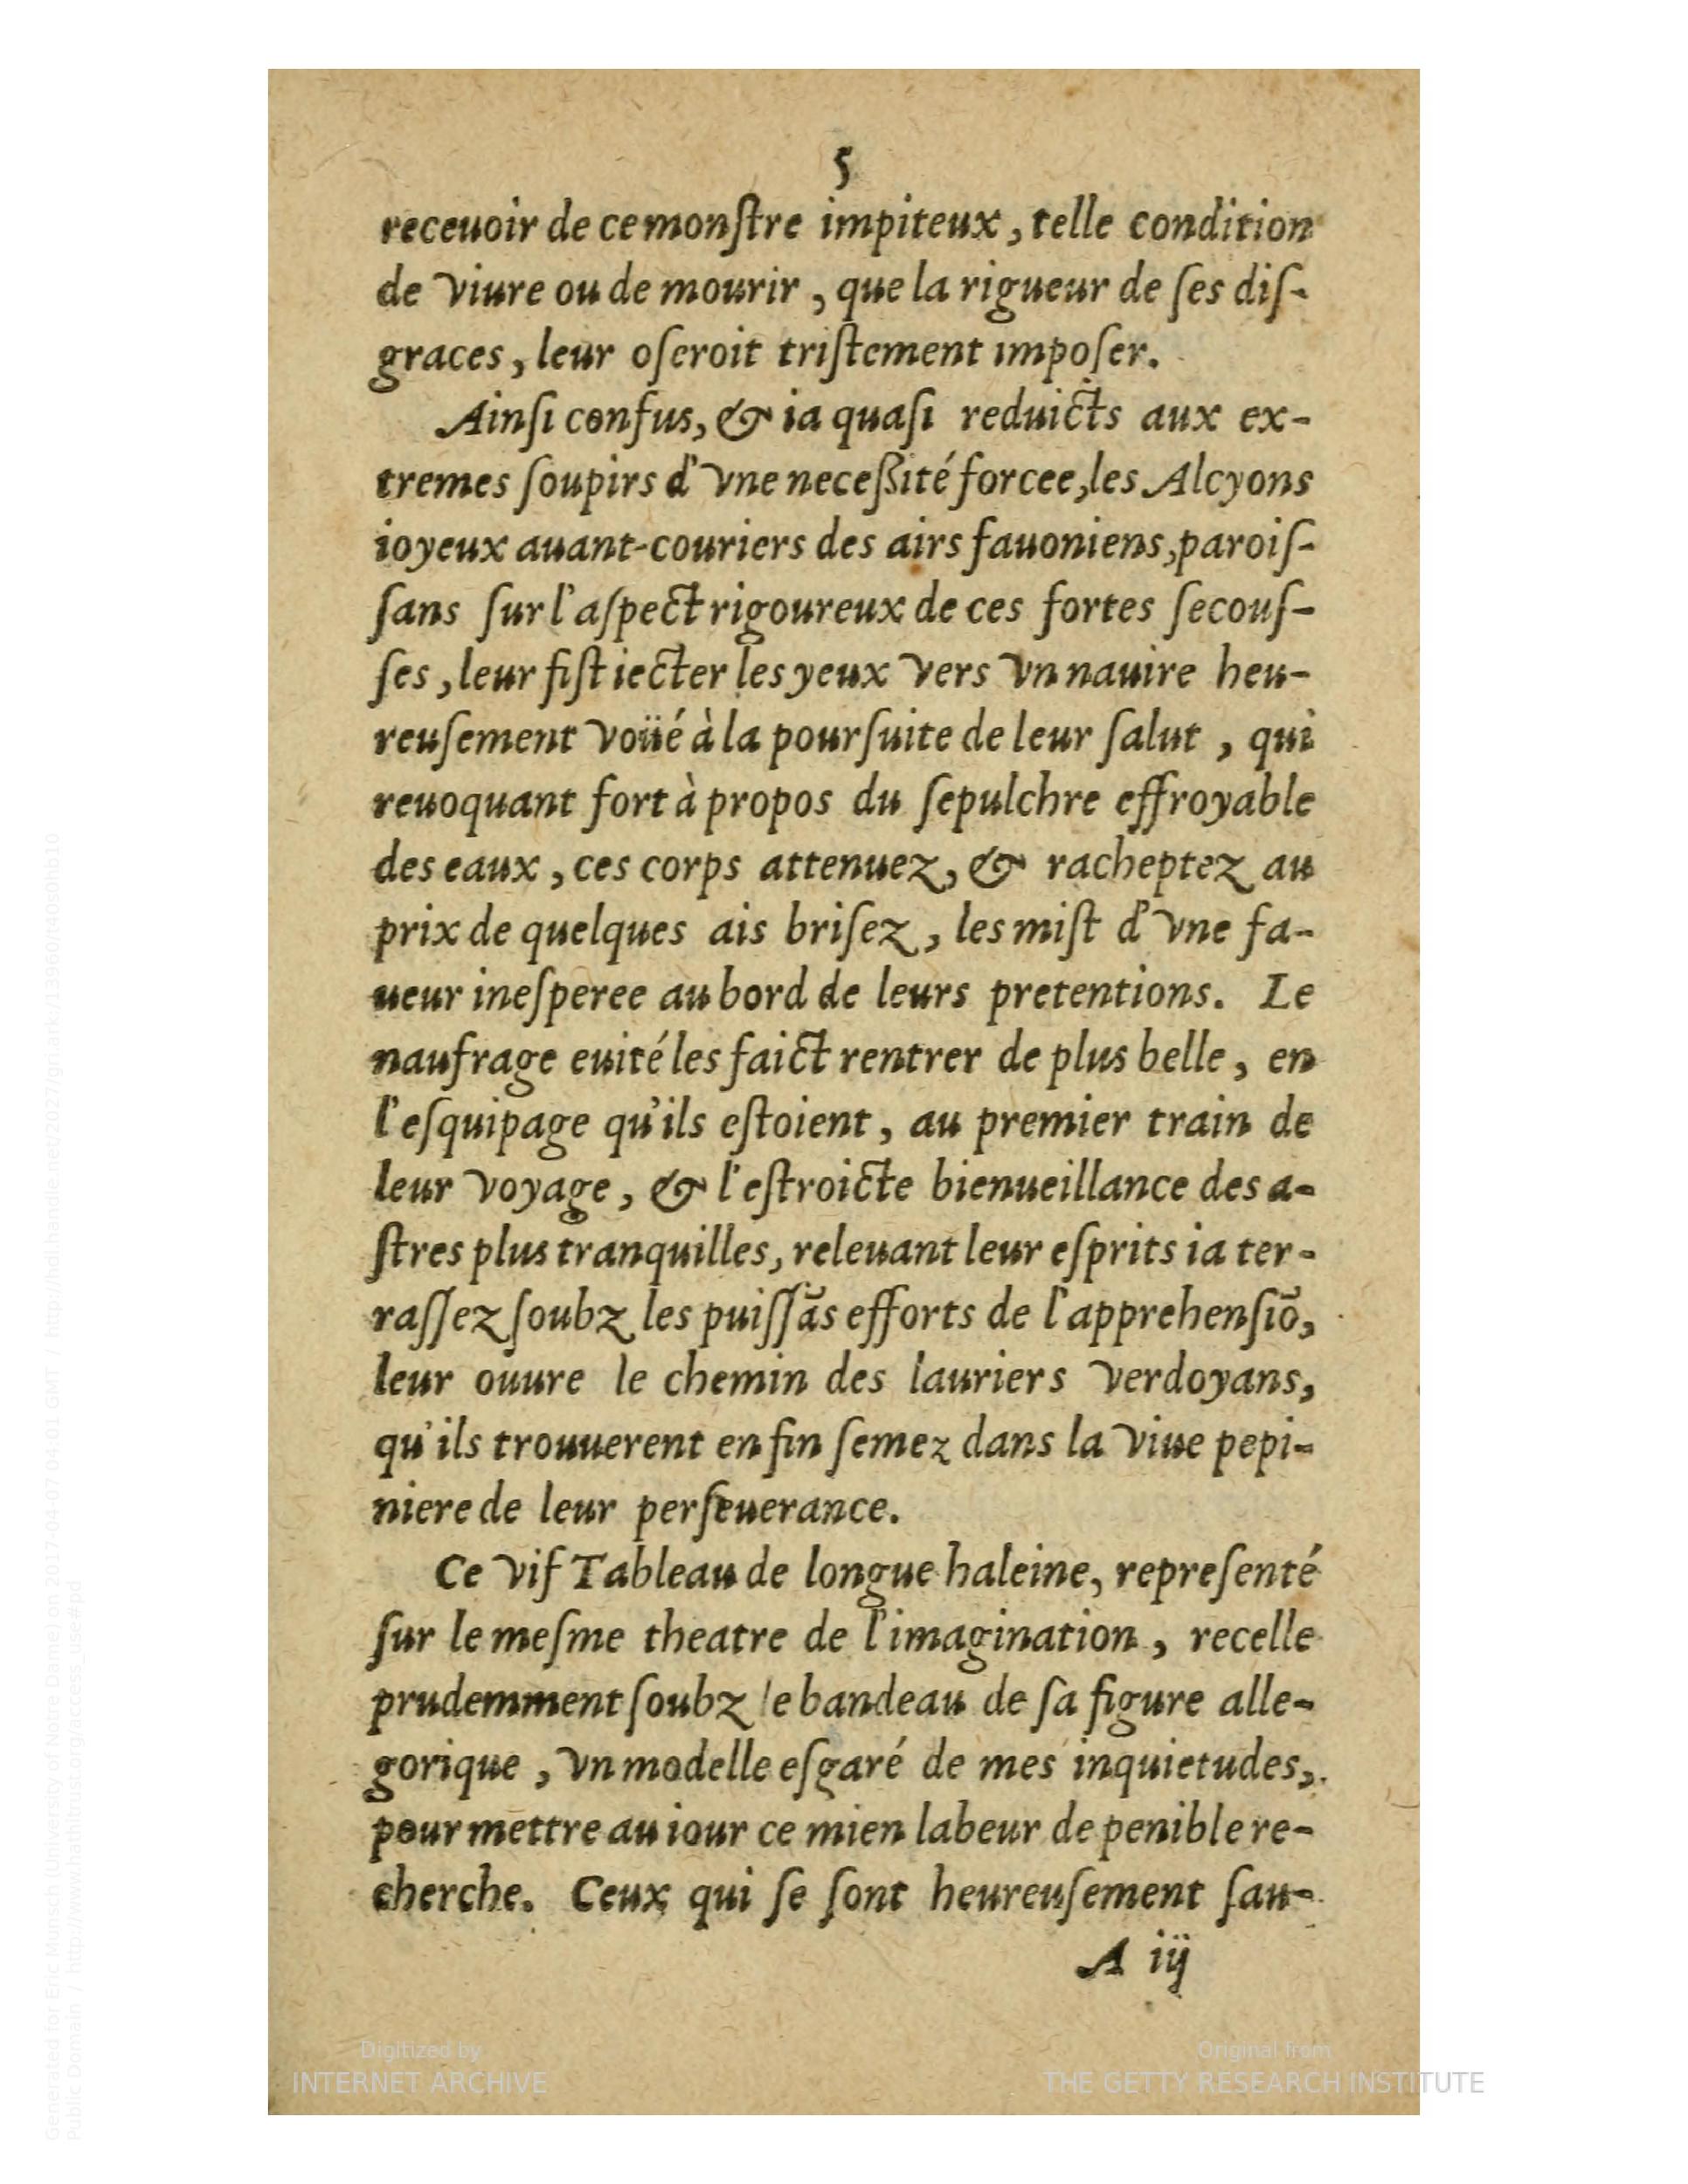 5
receuoir de ce monſtre impiteux, telle condition
de viure ou de mourir, que la rigueur de ſes diſ-
graces, leur oſeroit triſtement impoſer.
Ainſi confus, & ia quaſi reduicts aux ex-
tremes ſoupirs d'vne neceſſité forcee, les Alcyons
ioyeux auant-couriers des airs fauoniens, paroiſ-
ſans ſur l'aſpect rigoureux de ces fortes ſecouſ-
ſes, leur fiſt iecter les yeux vers vn nauire heu-
reuſement voüé à la pourſuite de leur ſalut, qui
reuoquant fort à propos du ſepulchre effroyable
des eaux, ces corps attenuez, & racheptez au
prix de quelques ais briſez, les miſt d'vne fa-
ueur ineſperee au bord de leurs pretentions. Le
naufrage euité les faict rentrer de plus belle, en
l'eſquipage qu'ils eſtoient, au premier train de
leur voyage, & l'eſtroicte bienueillance des a-
ſtres plus tranquilles, releuant leur eſprits ia ter-
raſſez ſoubz les puiſſãs efforts de l'apprehenſiõ,
leur ouure le chemin des lauriers verdoyans,
qu'ils trouuerent en fin ſemez dans la viue pepi-
niere de leur perſeuerance.
Ce vif Tableau de longue haleine, repreſenté
ſur le meſme theatre de l'imagination, recelle
prudemment ſoubz le bandeau de ſa figure alle-
gorique, vn modelle eſgaré de mes inquietudes,
pour mettre au iour ce mien labeur de penible re-
cherche. Ceux qui ſe ſont heureuſement ſau-
A iij
Digitized by
INTERNET ARCHIVE
Original from
THE GETTY RESEARCH INSTITUTE
Generated for Eric Munsch (University of Notre Dame) on 2017-04-07 04:01 GMT / http://hdl.handle.net/2027/gri.ark:/13960/t40s0hb10
Public Domain / http://www.hathitrust.org/access_use#pd